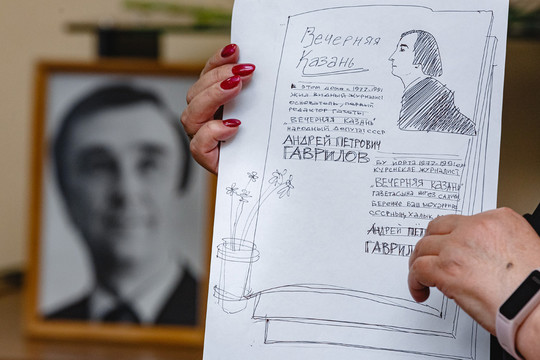 Вечерняя
Казань
В этом доме с 1977-1981
жил видный журналист
основатель, первый
редактор газеты
"ВЕЧЕРНЯЯ КАЗАНЬ"
народный депутат СССР
АНДРЕЙ ПЕТРОВИЧ
ГАВРИЛОВ
БУ ЙОРТА 1977-1981 еч
КУРЕНЕКЛЕ ЖУРНАЛИСТ
"ВЕЧЕРНЯЯ КАЗАНЬ"
ГАЗЕТАСЫНА
БЕРЕНЧЕ БАШ МӨХӘРРИР
СССРНЫҢ ХАЛЫК
АНДРЕЙ ПЕТ
ГАВРИЛ